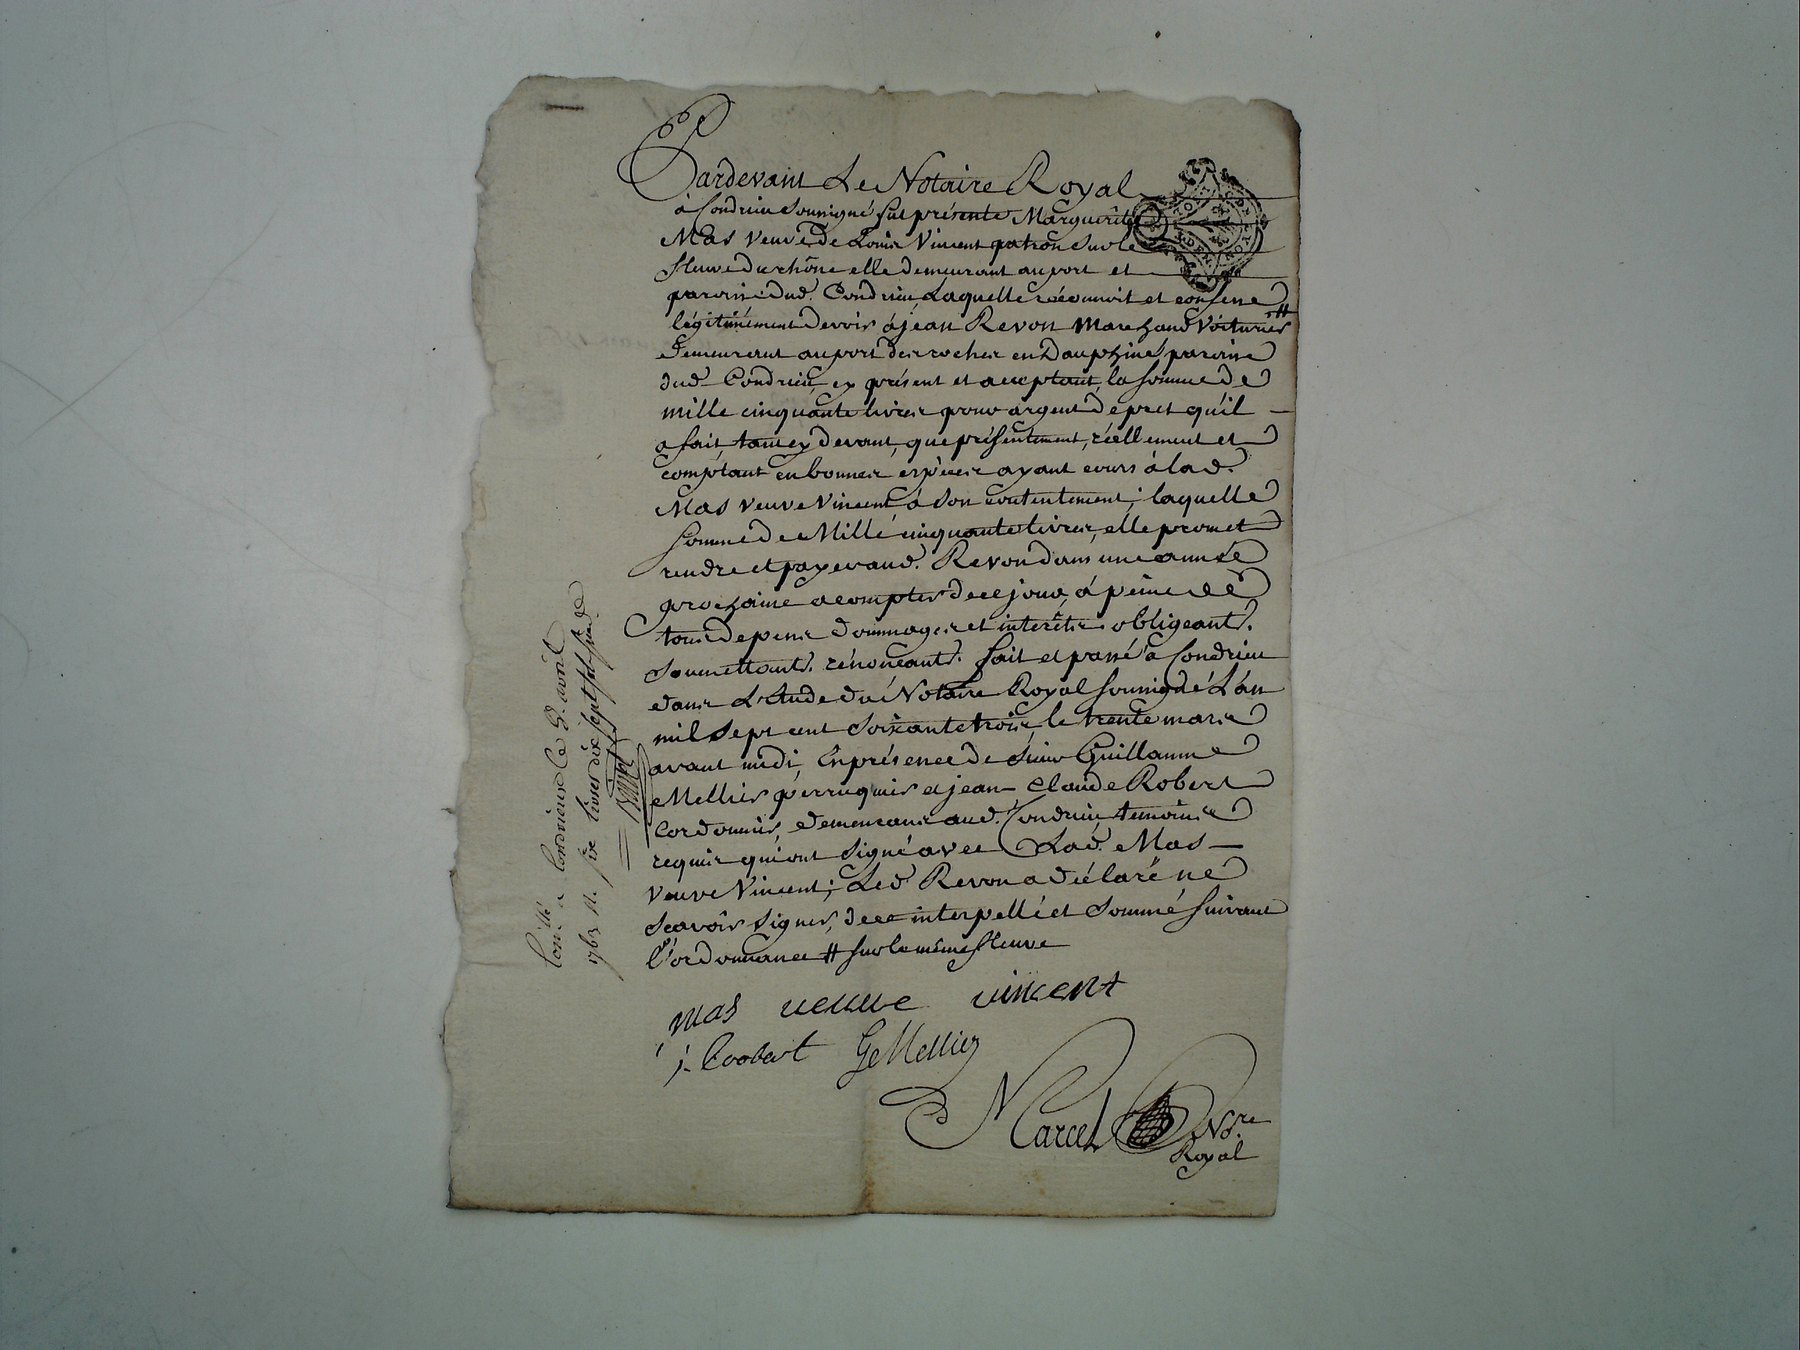 Pardevant Le Notaire Royal
à Condrieu soussigné fut présente Marguerite
Mas veuve de Louis Vincent patron sur le
fleuve du rhône elle demeurant au port et
paroisse dud. Condrieu, Laquelle réconnoit et confesse
légitimement devoir à jean Revon Marchand Voiturier #
demeurant au port des roches en Dauphiné paroisse
dud. Condrieu, cy présent et acceptant, la somme de
mille cinquante livres pour argent de pret qu'il
a fait, tant cy devant, que présentement, réellement et
comptant en bonnes espèces ayant cours à lad.
Mas veuve Vincent à son contentement; laquelle
somme de Mille cinquante livres, elle promet
rendre et payer aud. Revon dans une année
prochaine a compter de ce jour, à peine de
tous depens dommages et interêts obligeant.
soumettant. rénonçant. fait et passé à Condrieu
dans L'étude du Notaire Royal soussigné L'an
mil sept cent soixante trois, le trente mars
avant midi, En présence de sieur Guillaume
Mellier perruquier et jean Claude Robert
Cordonnier, demeurans aud. Condrieu, temoins
requis qui ont signé avec Lad. Mas
veuve Vincent; Led. Revon a déclaré ne
scavoir signer, de ce interpellé et sommé suivant
l'ordonnance # sur le même fleuve
mas veuve vincent
j. C robert G Mellier
Marcel No.re
Royal
Con.llé a Condrieu le 8. avril
1763 R. six livres dix sept sols six d.